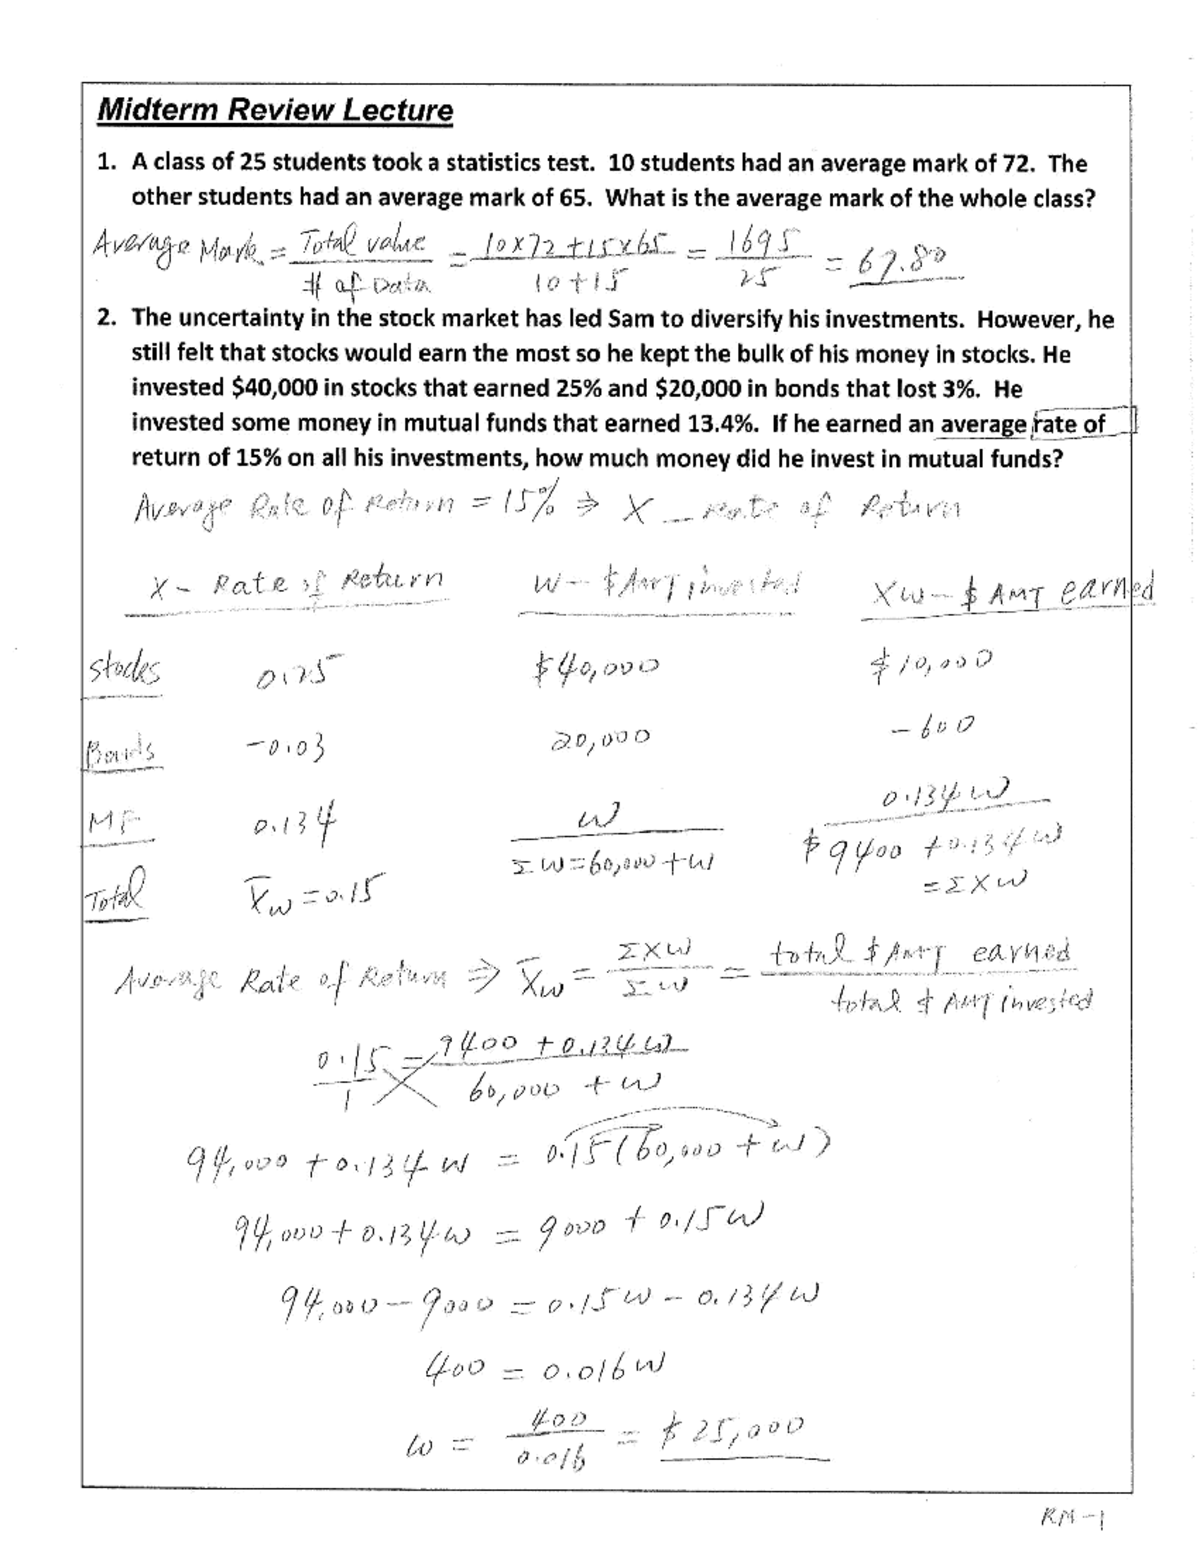 Midterm Review Lecture
1. A class of 25 students took a statistics test. 10 students had an average mark of 72. The
other students had an average mark of 65. What is the average mark of the whole class?
Average Mark = Total value / # of Data = 10×72+15×65 / 10+15 = 1695 / 25 = 67.80
2. The uncertainty in the stock market has led Sam to diversify his investments. However, he
still felt that stocks would earn the most so he kept the bulk of his money in stocks. He
invested $40,000 in stocks that earned 25% and $20,000 in bonds that lost 3%. He
invested some money in mutual funds that earned 13.4%. If he earned an average rate of
return of 15% on all his investments, how much money did he invest in mutual funds?
Average Rate of Return = 15% ⇒ X – Rate of Return
X – Rate of Return W – $ AMT invested XW – $ AMT earned
Stocks 0.25 $40,000 $10,000
Bonds -0.03 20,000 -600
MF 0.134 W 0.134W
Total X̄w = 0.15 ΣW=60,000+W $9400 + 0.134W
= ΣXW
Average Rate of Return ⇒ X̄w = ΣXW / ΣW = total $ AMT earned / total $ AMT invested
0.15 / 1 = 9400 + 0.134W / 60,000 + W
94,000 + 0.134W = 0.15(60,000 + W)
94,000 + 0.134W = 9000 + 0.15W
94,000 – 9000 = 0.15W – 0.134W
400 = 0.016W
W = 400 / 0.016 = $25,000
RM-1